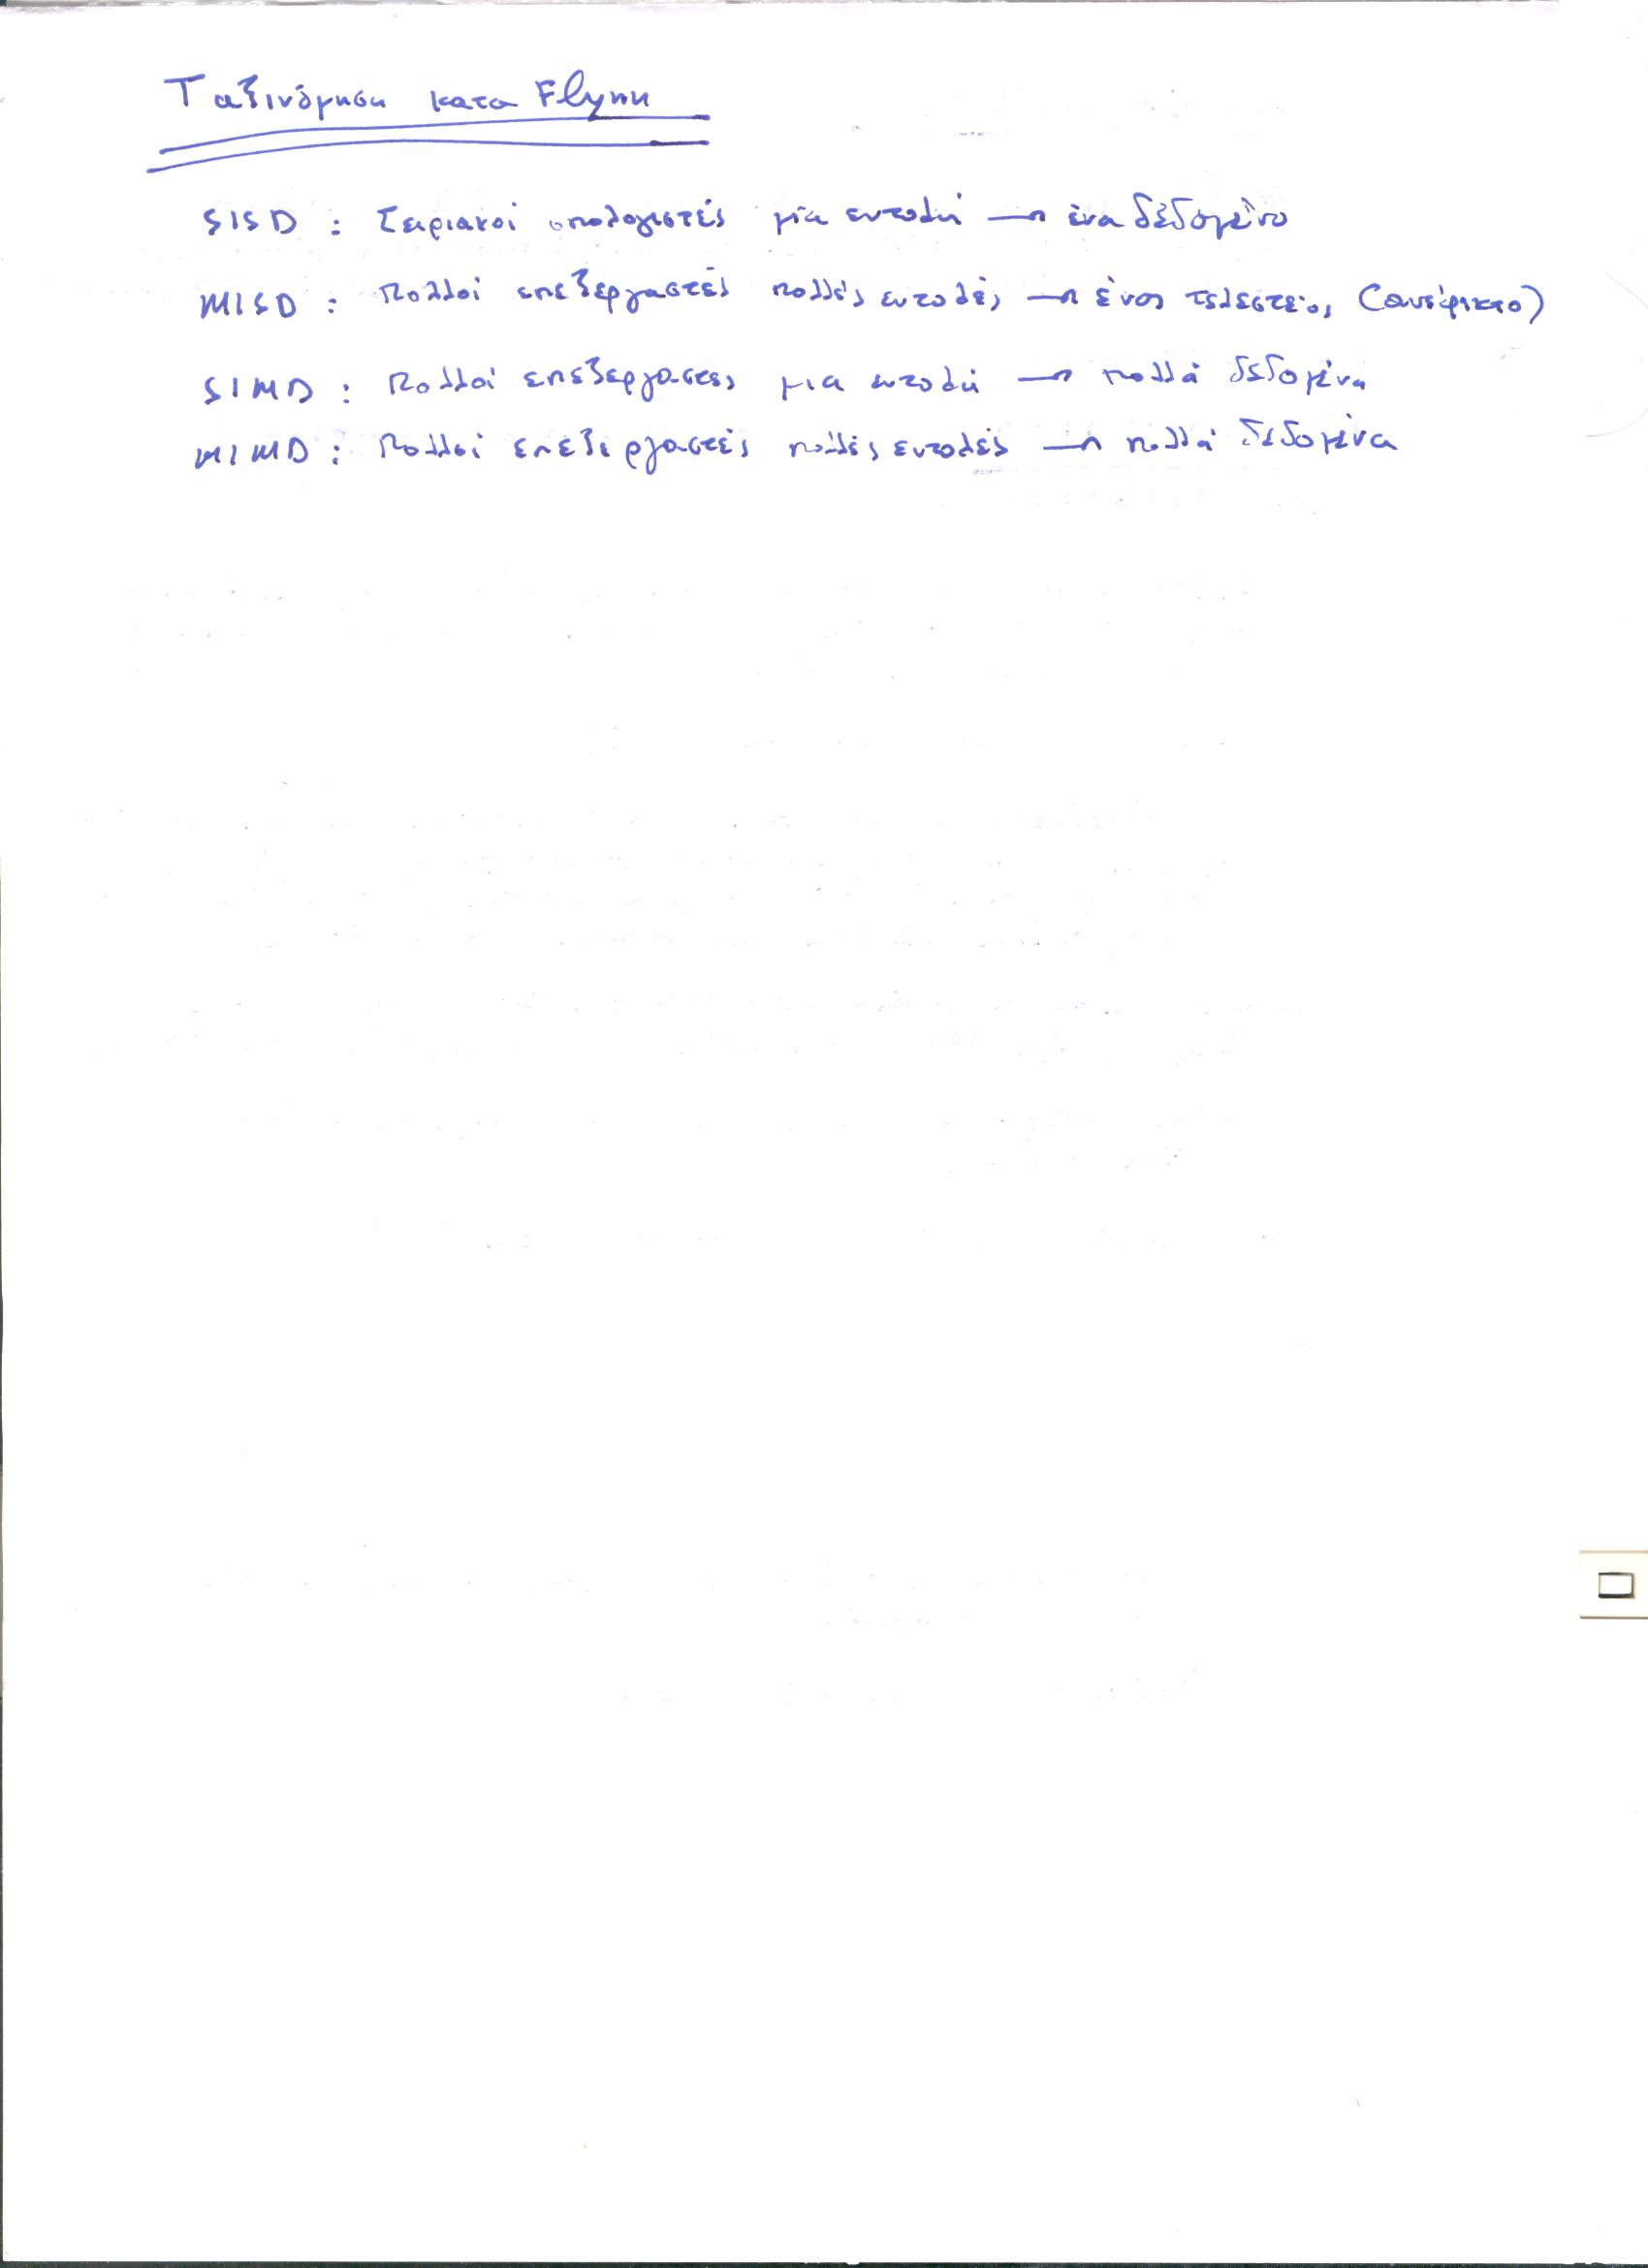 Ταξινόμηση κατα Flynn
SISD : Σειριακοί υπολογιστές μία εντολή → ένα δεδομένο
MISD : Πολλοί επεξεργαστές πολλές εντολές → ένας τελεστέος (ανέφικτο)
SIMD : Πολλοί επεξεργαστες μια εντολή → πολλά δεδομένα
MIMD : Πολλοί επεξεργαστές πολλές εντολές → πολλά δεδομένα